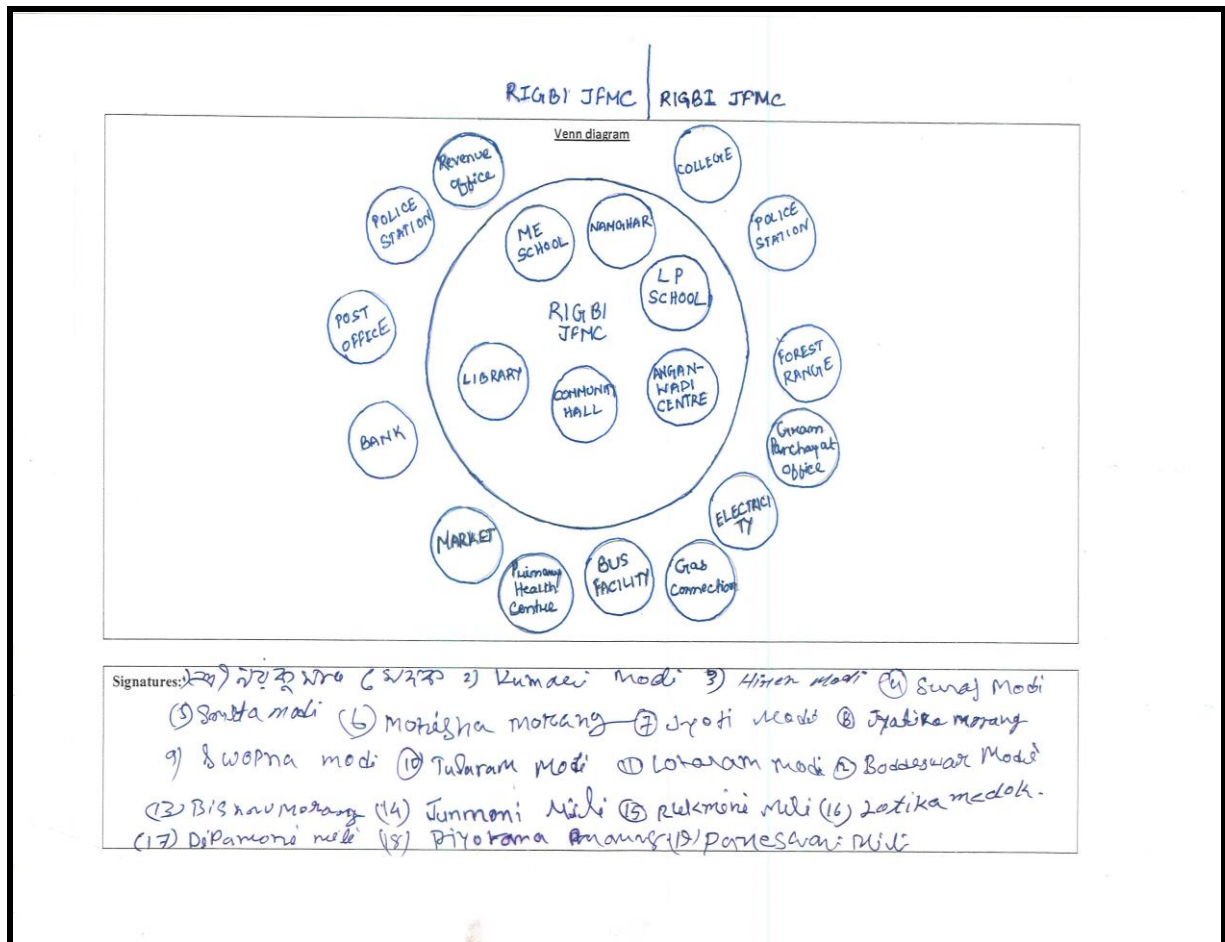 RIGBI JFMC | RIGBI JFMC
Venn diagram
Revenue
Office
COLLEGE
POLICE
STATION
ME
SCHOOL
NAMGHAR
POLICE
STATION
LP
SCHOOL
RIGBI
JFMC
POST
OFFICE
FOREST
RANGE
LIBRARY
COMMUNITY
HALL
ANGAN-
WADI
CENTRE
BANK
Gram
Panchayat
Office
ELECTRICI
TY
MARKET
Primary
Health
Centre
BUS
FACILITY
Gas
Connection
Signatures: 2) Kumari Modi 3) Hiren Modi (4) Suraj Modi
(5) modi (6) Monisha Morang (7) Jyoti Modi (8) Jyotika Morang
9) Swopna modi (10) Tularam Modi (11) Modi (12) Boddeswar Modi
(13) Morang (14) Junmoni Mili (15) Rukmoni Mili (16) Lotika medok.
(17) DiPamoni mili (18) (19) Paneswari Mili